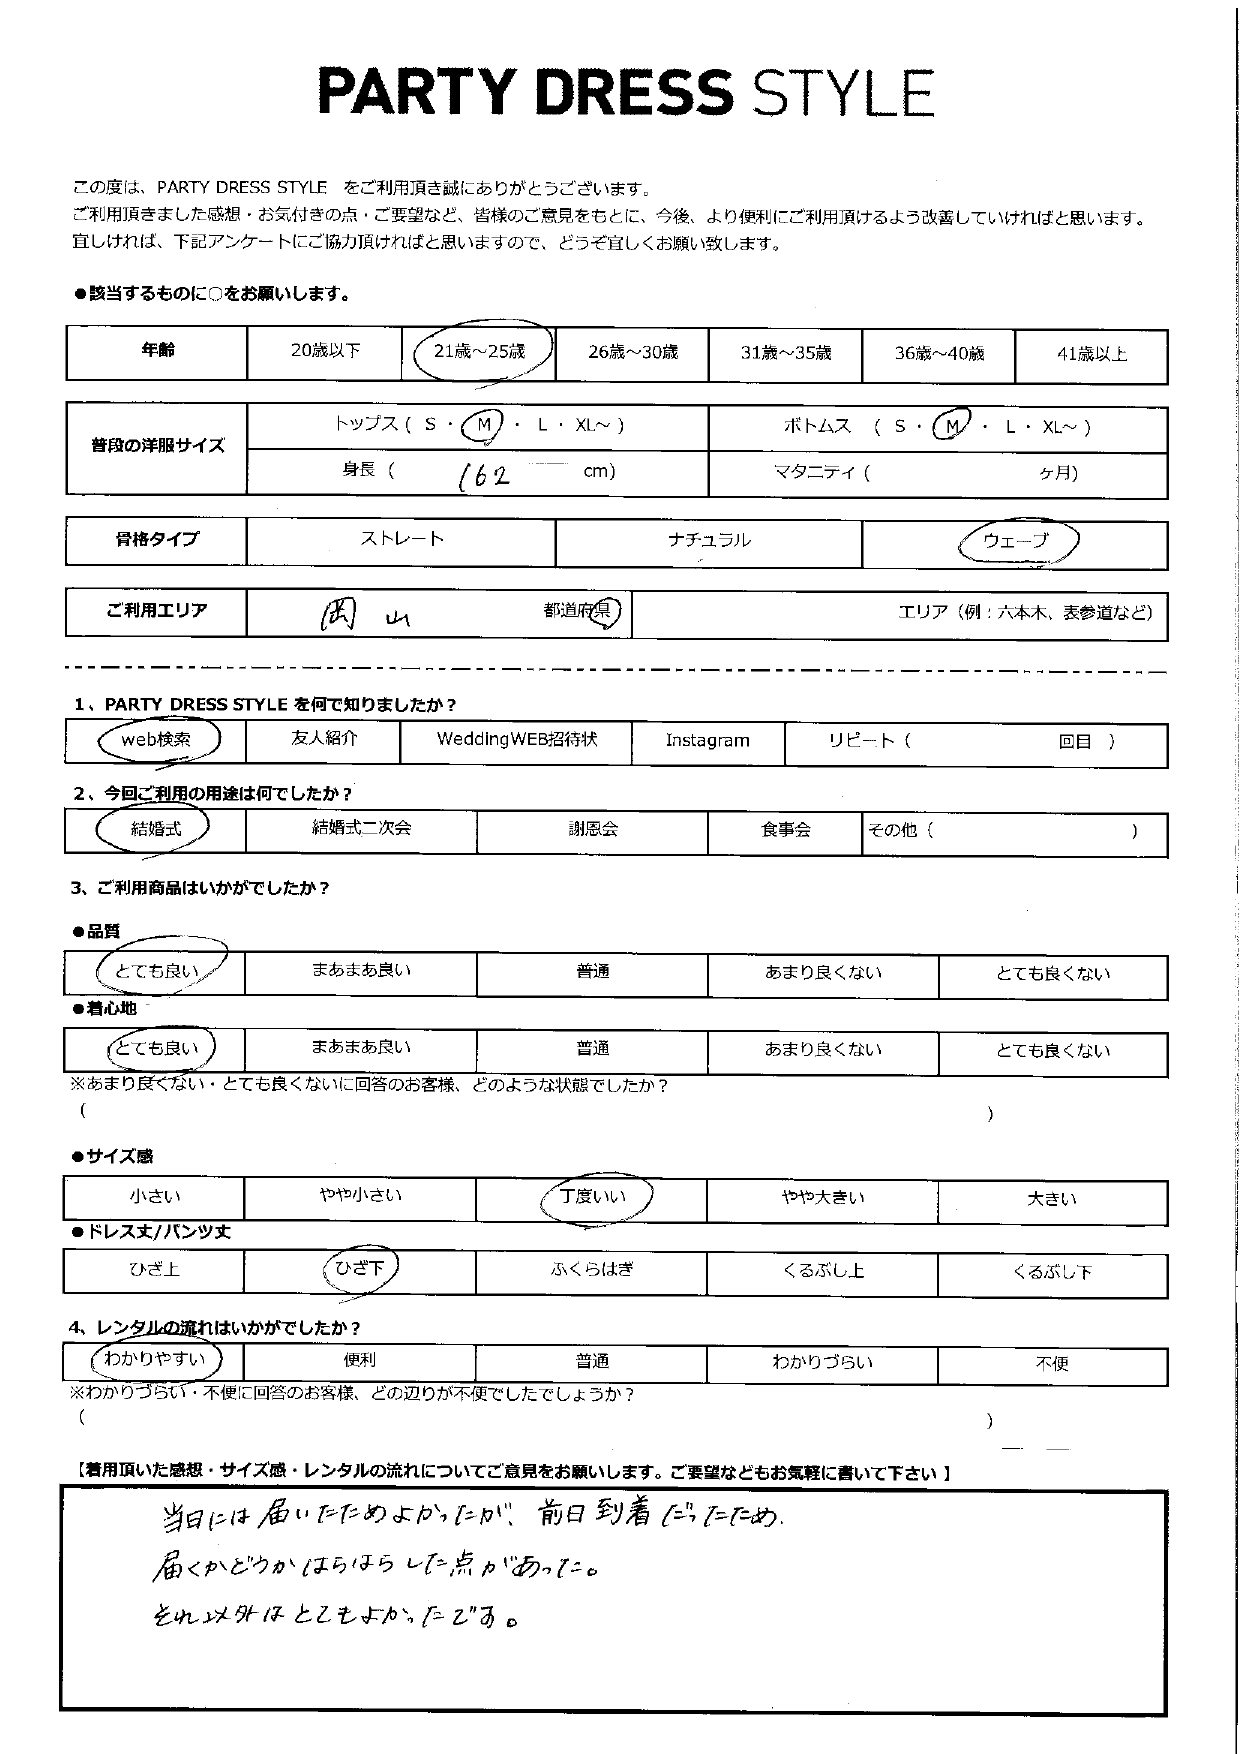 PARTY DRESS STYLE
この度は、PARTY DRESS STYLE をご利用頂き誠にありがとうございます。
ご利用頂きました感想・お気付きの点・ご要望など、皆様のご意見をもとに、今後、より便利にご利用頂けるよう改善していければと思います。
宜しければ、下記アンケートにご協力頂ければと思いますので、どうぞ宜しくお願い致します。
●該当するものに○をお願いします。
年齢 20歳以下 21歳～25歳 26歳～30歳 31歳～35歳 36歳～40歳 41歳以上
普段の洋服サイズ トップス ( S ・ M ・ L ・ XL～ ) ボトムス ( S ・ M ・ L ・ XL～ )
身長 ( 162 cm) マタニティ ( ヶ月)
骨格タイプ ストレート ナチュラル ウェーブ
ご利用エリア 岡山 都道府県 エリア（例：六本木、表参道など）
1、PARTY DRESS STYLE を何で知りましたか？
web検索 友人紹介 WeddingWEB招待状 Instagram リピート ( 回目 )
2、今回ご利用の用途は何でしたか？
結婚式 結婚式二次会 謝恩会 食事会 その他 ( )
3、ご利用商品はいかがでしたか？
●品質
とても良い まあまあ良い 普通 あまり良くない とても良くない
●着心地
とても良い まあまあ良い 普通 あまり良くない とても良くない
※あまり良くない・とても良くないに回答のお客様、どのような状態でしたか？
( )
●サイズ感
小さい やや小さい 丁度いい やや大きい 大きい
●ドレス丈/パンツ丈
ひざ上 ひざ下 ふくらはぎ くるぶし上 くるぶし下
4、レンタルの流れはいかがでしたか？
わかりやすい 便利 普通 わかりづらい 不便
※わかりづらい・不便に回答のお客様、どの辺りが不便でしたでしょうか？
( )
【着用頂いた感想・サイズ感・レンタルの流れについてご意見をお願いします。ご要望などもお気軽に書いて下さい】
当日には届いたためよかったが、前日到着だったため、
届くかどうかはらはらした点があった。
それ以外はとてもよかったです。